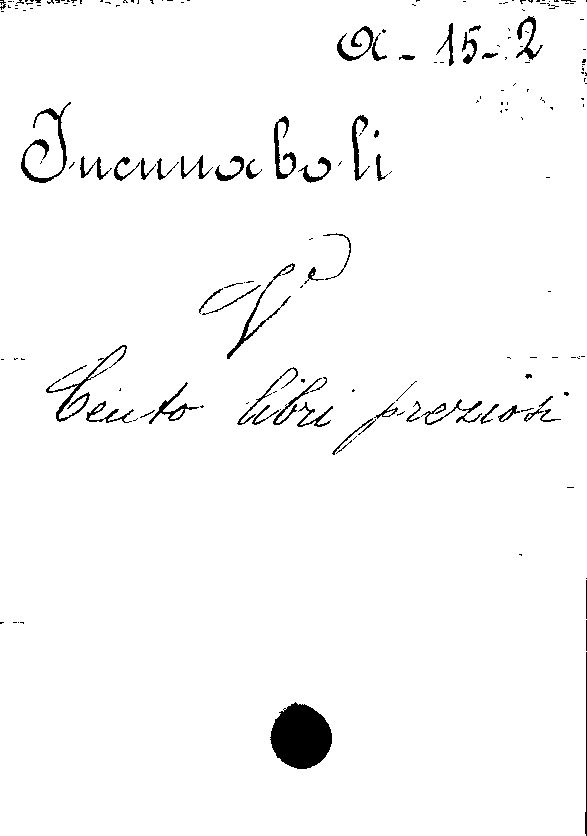 A-15-2
Incunaboli
V
Cento libri preziosi